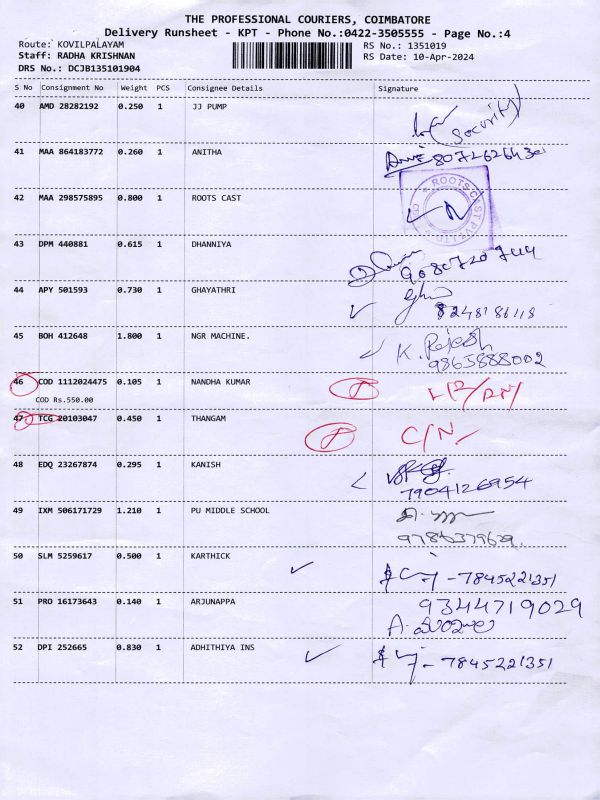 THE PROFESSIONAL COURIERS, COIMBATORE
Delivery Runsheet - KPT - Phone No.:0422-3505555 - Page No.:4
Route: KOVILPALAYAM RS No.: 1351019
Staff: RADHA KRISHNAN RS Date: 10-Apr-2024
DRS No.: DCJB135101904
S No Consignment No Weight PCS Consignee Details Signature
40 AMD 28282192 0.250 1 JJ PUMP
(Security)
41 MAA 864183772 0.260 1 ANITHA
42 MAA 298575895 0.800 1 ROOTS CAST
ROOTS CAST PVT LTD
43 DPM 440881 0.615 1 DHANNIYA
44 APY 501593 0.730 1 GHAYATHRI
8248186118
45 BOH 412648 1.800 1 NGR MACHINE.
K. Rajesh
9865888002
46 COD 1112024475 0.105 1 NANDHA KUMAR
COD Rs.550.00
47 TCG 20103047 0.450 1 THANGAM C/N
48 EDQ 23267874 0.295 1 KANISH
7904126954
49 IXM 506171729 1.210 1 PU MIDDLE SCHOOL
50 SLM 5259617 0.500 1 KARTHICK
- 7845221351
51 PRO 16173643 0.140 1 ARJUNAPPA 9344719029
52 DPI 252665 0.830 1 ADHITHIYA INS
- 7845221351